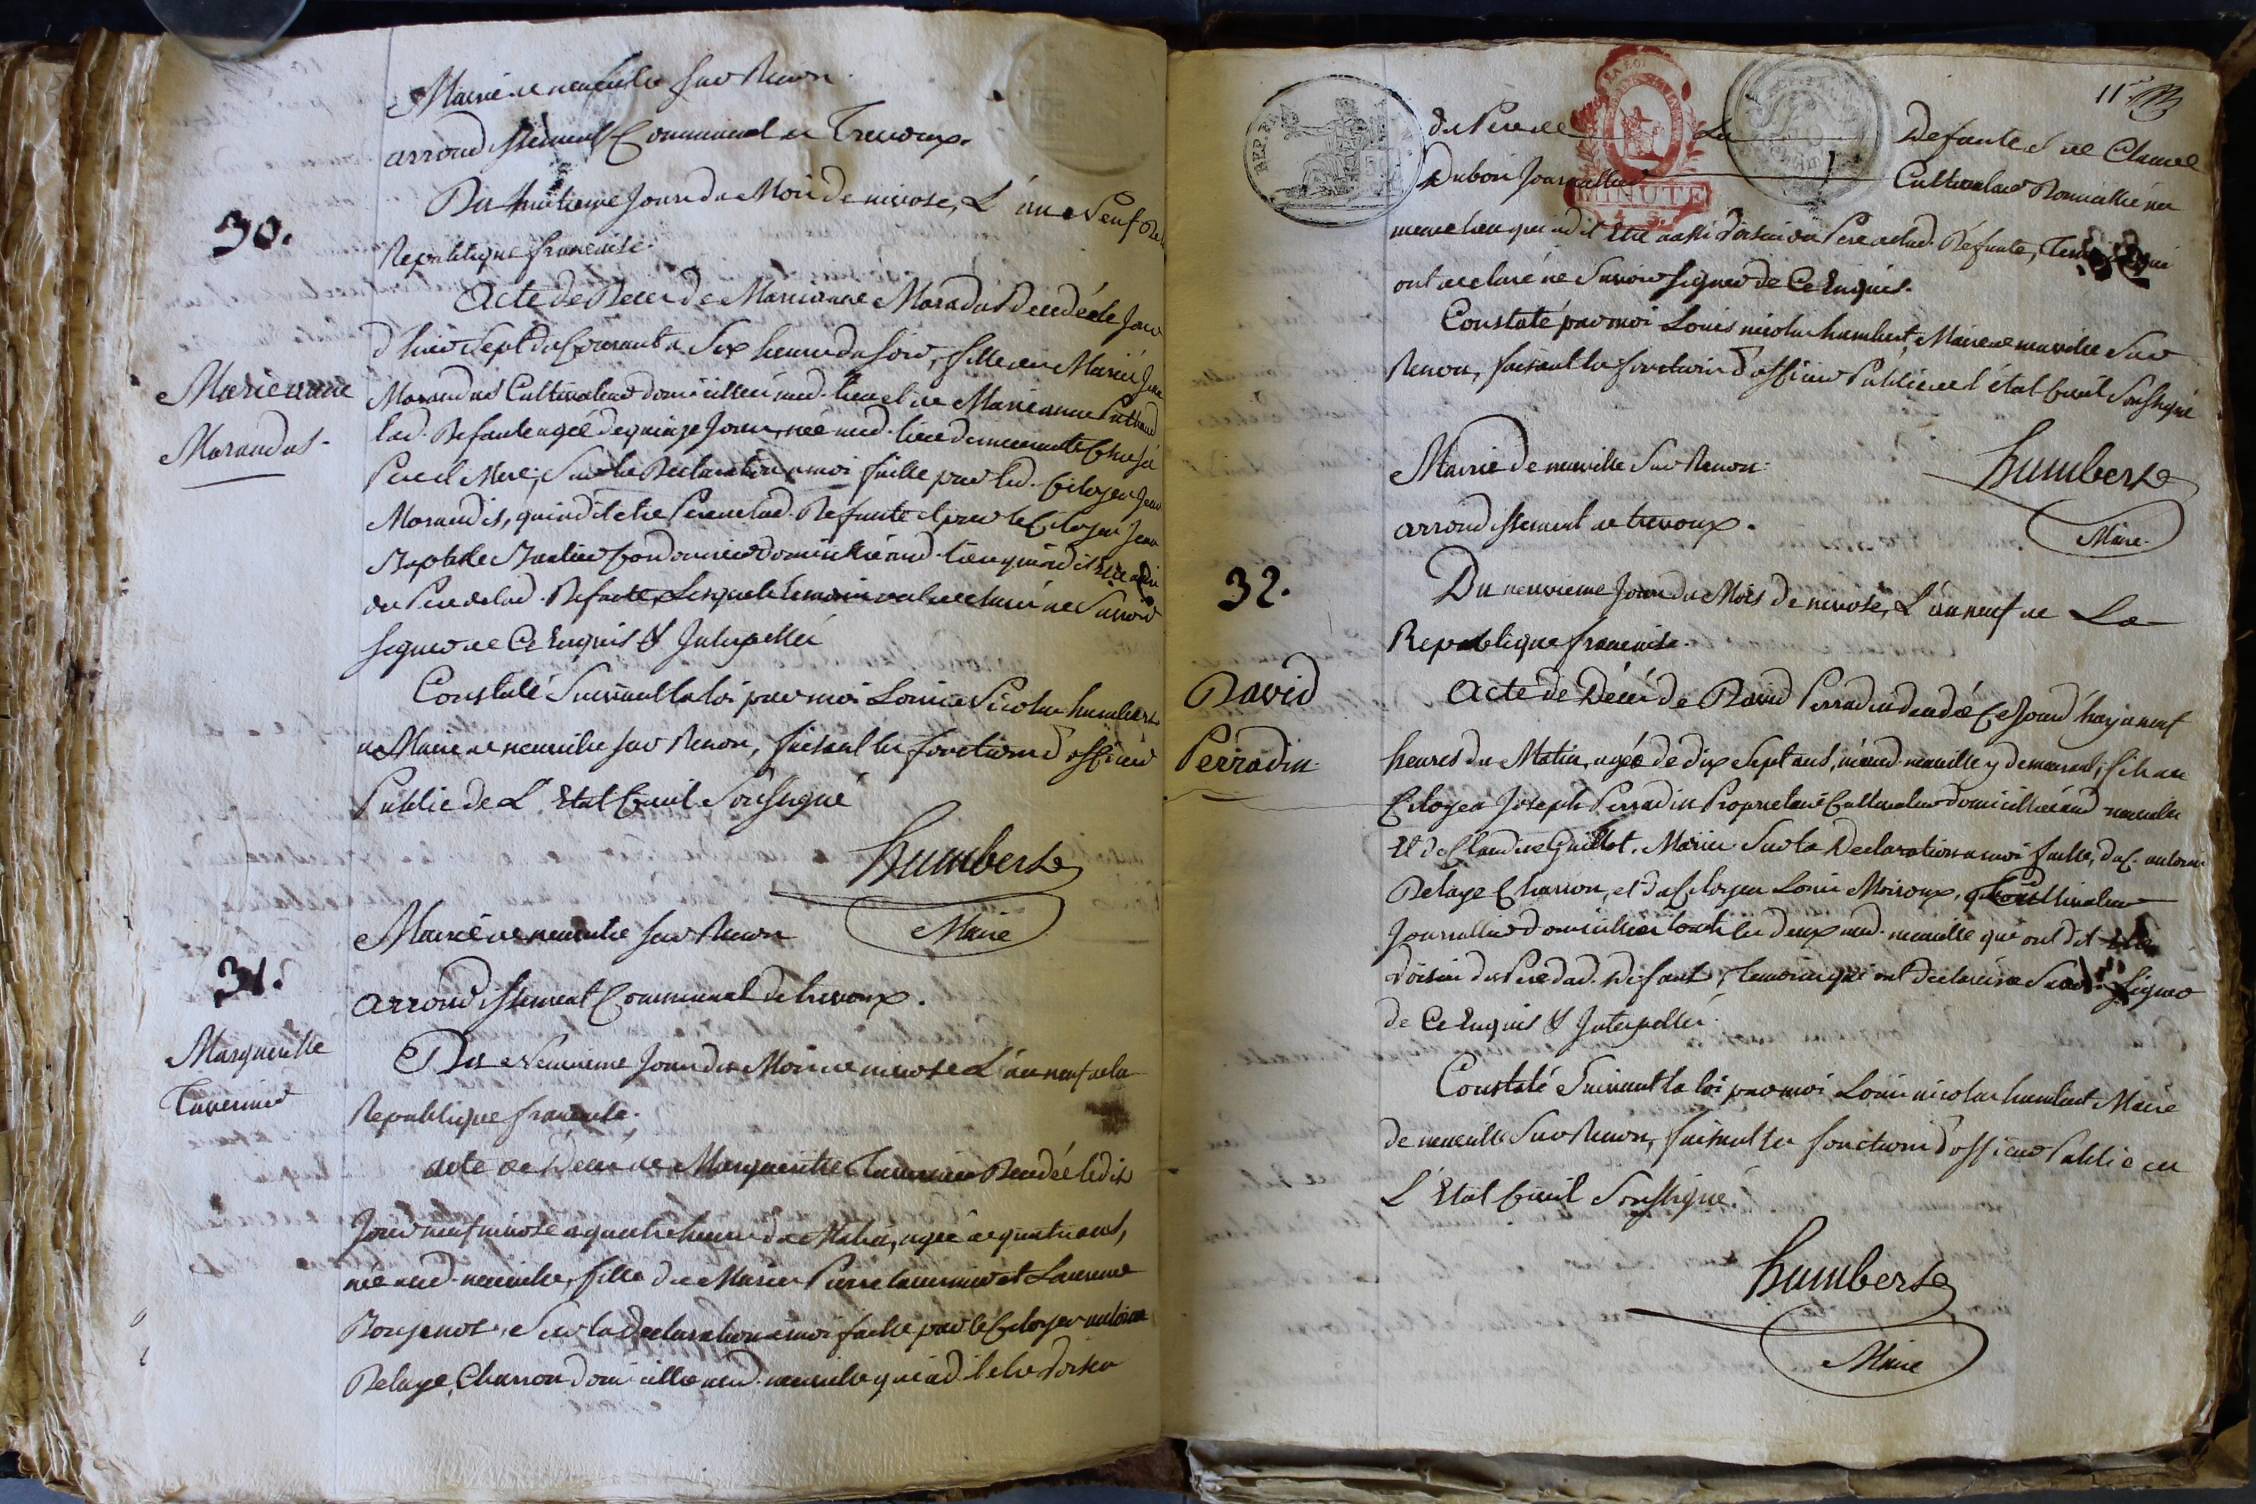 Mairie de neuville sur Renon
arrondissement Communal de Trevoux.
30.
Du huitieme Jour du Mois de nivose, L'an Neuf de la
Republique francaise.
Acte de Deces de Marieanne Morandas Decedée le Jour
d'hier Sept du Courant a Six heures du soir, fille de Mariés Jean
Marieanne
Morandas
Morandas Cultivateur domicilié aud. lieu et de Marieanne
lad. Defante agée de quinze Jours, née aud. lieu demeurante Chez sé
Pere et Mere, Sur la Declaration a moi faitte par led. Citoyen Jean
Morandas, qui a dit etre Pere de lad. Defante et par le Citoyen Jean
Baptiste domicilié aud. lieu qui a dit Etre
du Pere de lad. Defante, Lesquels temoins ont declaré ne Savoir
signer de Ce Enquis & Interpellés
Constaté Suivant la loi par moi Louis Nicolas humbert
Maire de neuville sur Renon, faisant les fonctions d'officier
Public de L'Etat Civil Soussigné
humbert
Maire
Mairie de neuville sur Renon
31.
arrondissement Communal de trevoux.
Marguerite
Tavernier
Du Neuvieme Jour du Mois de nivose L'an neuf de la
Republique francaise.
acte de Deces de Marguerite Tavernier Decedée ledit
Jour neuf nivose a quatre heures du Matin, agée de quatre ans,
née aud. neuville, fille de Mariés Pierre tavernier et Laurence
Sur la Declaration a moi faitte par le Citoyen antoine
Delaye, Charron domicilié aud. neuville qui a dit etre Voisin
11
du Pere de La Defante & de Claude
Dubois Journallier Cultivateur Domicilié au
meme lieu qui a dit Etre aussi Voisin du Pere de lad. Défante, qui
ont declaré ne Savoir signer de Ce Enquis.
Constaté par moi Louis nicolas humbert, Maire de neuville Sur
Renon, faisant les fonctions d'officier Public de l'état Civil Soussigné
humbert
Maire
Mairie de neuville Sur Renon.
arrondissement de trevoux.
32.
Du neuvieme Jour du Mois de nivose, L'an neuf de La
Republique francaise.
David
Perradin
Acte de Décés de David Perradin decedé Ce Jourd'huy a neuf
heures du Matin, agée de dix Sept ans, né aud. neuville y demeurant, fils du
Citoyen Joseph Perradin Proprietaire Cultivateur domicilié aud neuville
Et de Claudine Guillot. Mariés Sur la Declaration a moi faitte, du C. antoine
Delaye Charron, et du Citoyen Louis Moiroux,
Journallier domiciliés tous les deux aud. neuville qui ont dit Etre
Voisin du Pere dud. Defant, Temoins qui ont declaré ne Savoir Signer
de Ce Enquis & Interpellés.
Constaté Suivant la loi par moi Louis nicolas humbert Maire
de neuville Sur Renon, faisant les fonctions d'officier Public de
L'Etat Civil Soussigné.
humbert
Maire